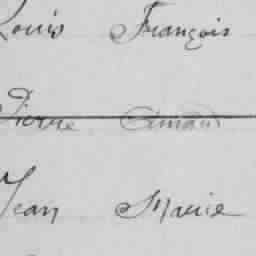 Louis François
Pierre Amand
Jean Marie